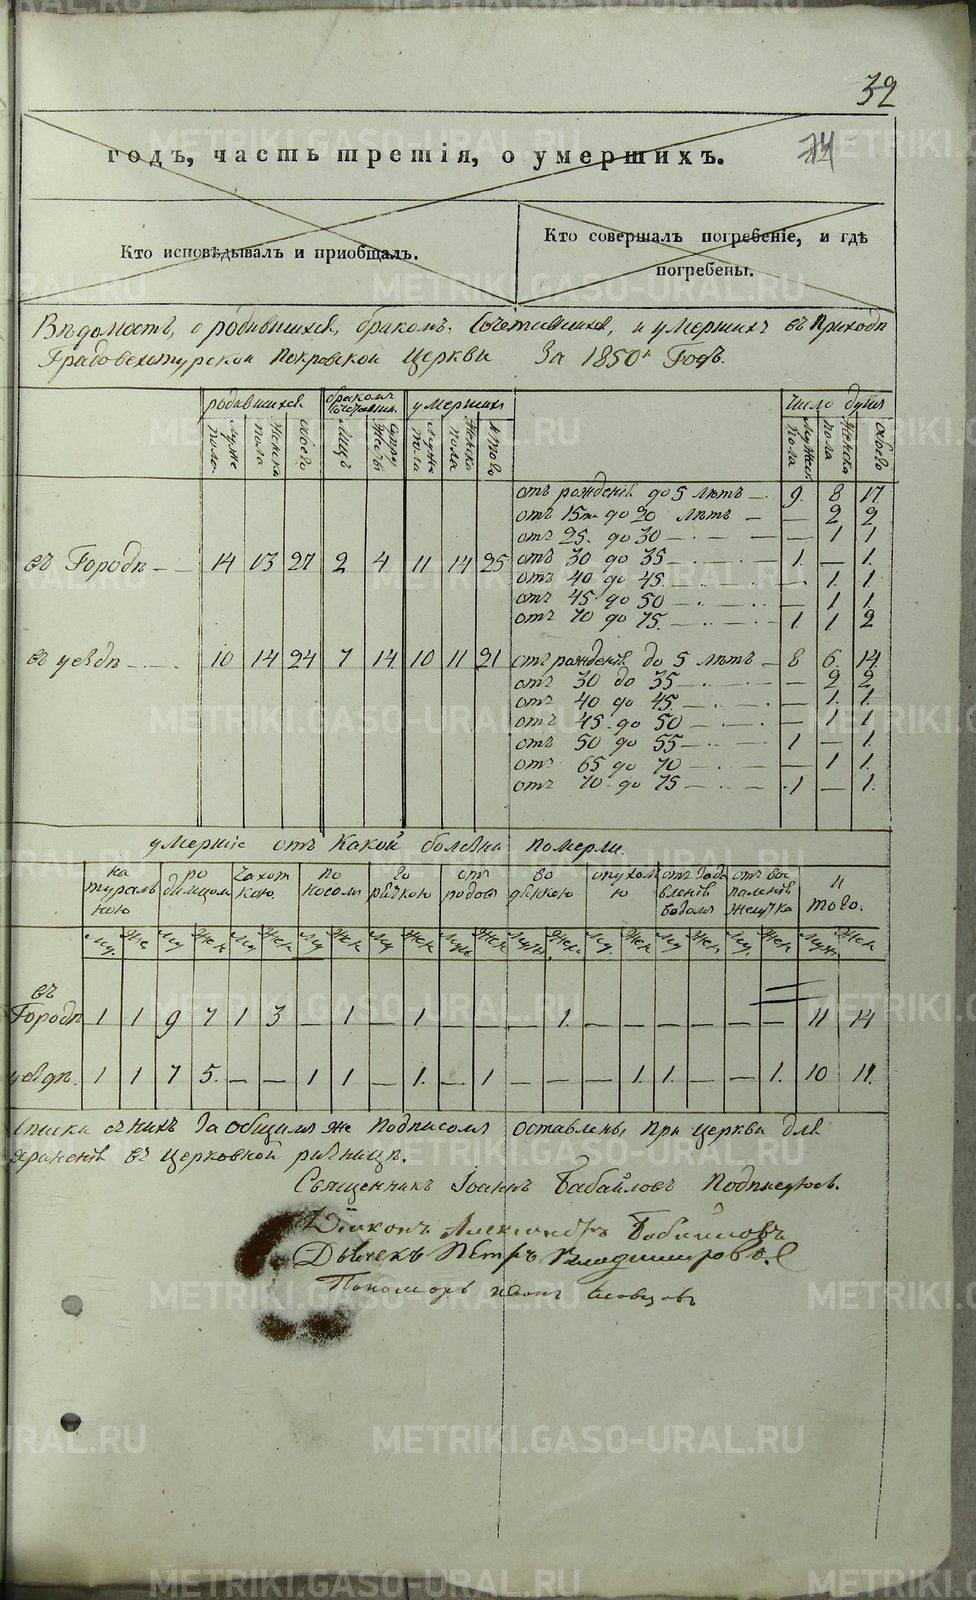 32
годъ, часть третія, о умершихъ.
Кто исповѣдывалъ и приобщалъ.
Кто совершалъ погребеніе, и гдѣ
погребены.
Вѣдомость, о родившихся, бракомъ сочетавшихся, и умершихъ въ Приходѣ
Градоверхотурской Покровской Церкви За 1850й Годъ.
родившихся бракомъ сочетавши. умершихъ число душъ
Муже пола Женска пола обоего Лицъ супружествъ Мужс пола Женска пола Итого Мужеск пола Женска пола обоего
въ Городѣ — 14 13 27 2 4 11 14 25
отъ рожденія до 5 лѣтъ — 9. 8 17.
отъ 15ти до 20 лѣтъ — — 2 2
отъ 25. до 30 — — 1 1
отъ 30 до 35 — 1. — 1.
отъ 40 до 45. — — 1. 1.
отъ 45. до 50 — — 1 1
отъ 70 до 75. — 1. 1 2
въ уѣздѣ — 10 14 24 7 14 10 11 21
отъ рожденія до 5 лѣтъ — 8 6. 14.
отъ 30 до 35 — — 2 2
отъ 40 до 45. — — 1. 1.
отъ 45. до 50 — — 1 1
отъ 50 до 55 — 1 — 1.
отъ 65 до 70 — — 1 1.
отъ 70. до 75 — 1 — 1.
умершіе отъ Какой болезни померли.
натуральною родимцомъ чахоткою поносомъ горячкою отъ родовъ водянкою опухолью отъ воспаленія желудка итого.
въ
Городѣ 1 1 9 7 1 3 — 1 — 1. — — — 1. — — — — — — 11 14
уѣздѣ. 1 1 7 5. — — 1 1 — 1. — 1 — — — 1. 1. — — 1. 10 11.
Списки съ нихъ за общимъ же подписомъ оставлены при церкви для
храненія въ церковной ризницѣ.
Священникъ Іоаннъ Бабайловъ Подписуюсь.
Діаконъ Александръ Бабайловъ
Дьячекъ Петръ Владимировъ
Пономарь Словцовъ
METRIKI.GASO-URAL.RU